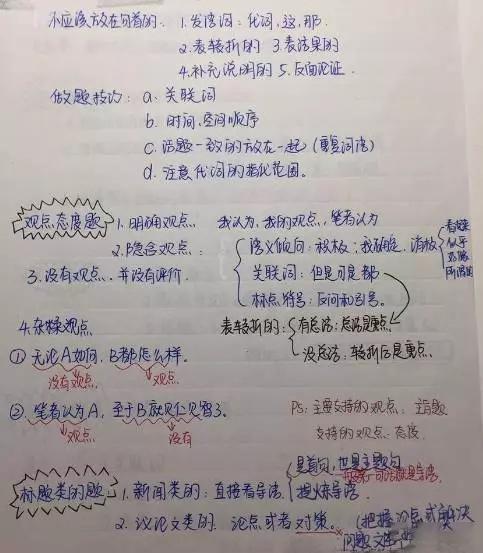 不应该放在句首的. 1.发语词: 代词,这,那.
2.表转折的 3.表结果的
4.补充说明的 5.反面论证.
做题技巧: a. 关联词
b. 时间、空间顺序
c. 话题一致的放在一起 (重复词语)
d. 注意代词的指代范围。
观点态度题 1.明确观点. 我认为,我的观点,笔者认为
2.隐含观点: 语义倾向: 积极: 我确定. 消极
看起来
似乎
所谓
3.没有观点. 并没有评价. 关联词: 但是 可是 都
标点符号: 反问和引号。
4.杂糅观点 表转折的: 有总结: 总结是重点
没总结: 转折后是重点.
① 无论A如何, B都怎么样。
没有观点. 观点
②. 笔者认为A, 至于B就见仁见智了。
观点 没有
PS: 主要支持的观点: 主旨题
支持的观点: 态度.
标题类的题 1.新闻类的: 直接看导语. 是首句, 也是主题句
第一句话就是导语.
提炼导语.
2. 议论文类的. 论点或者对策。(把握论点或解决
问题